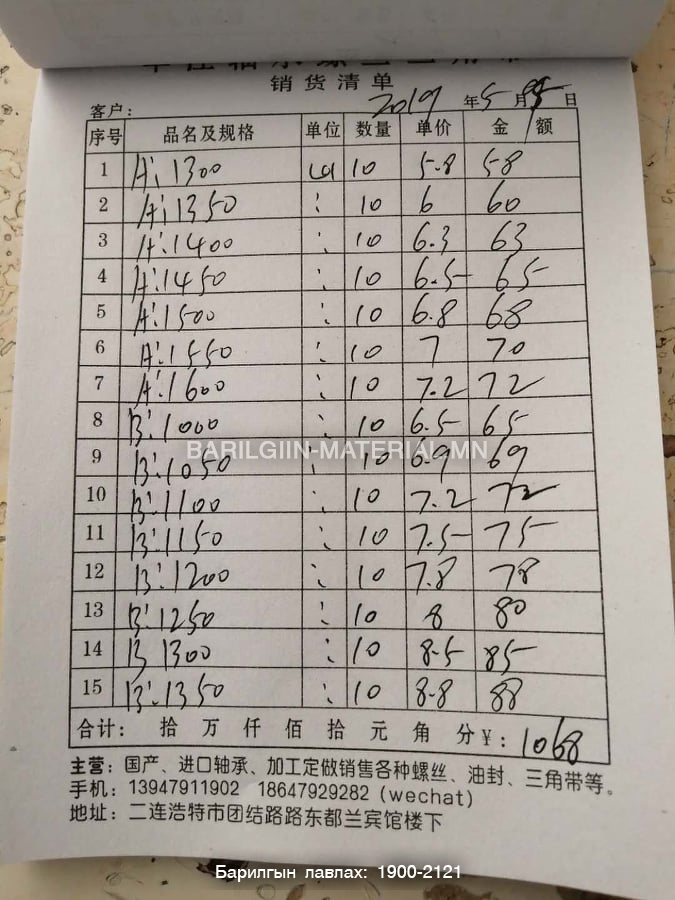 销货清单
客户: 2019 年 5 月 日
序号 品名及规格 单位 数量 单价 金 额
1 A:1300 10 5.8 58
2 A:1350 : 10 6 60
3 A:1400 : 10 6.3 63
4 A:1450 : 10 6.5 65
5 A:1500 : 10 6.8 68
6 A:1550 : 10 7 70
7 A:1600 : 10 7.2 72
8 B:1000 : 10 6.5 65
9 B:1050 : 10 6.9 69
BARILGIIN-MATERIAL.MN
10 B:1100 : 10 7.2 72
11 B:1150 : 10 7.5 75
12 B:1200 : 10 7.8 78
13 B:1250 : 10 8 80
14 B 1300 : 10 8.5 85
15 B:1350 : 10 8.8 88
合计: 拾 万 仟 佰 拾 元 角 分 ¥: 1068
主营: 国产、进口轴承、加工定做销售各种螺丝、油封、三角带等。
手机: 13947911902 18647929282 (wechat)
地址: 二连浩特市团结路路东都兰宾馆楼下
Барилгын лавлах: 1900-2121